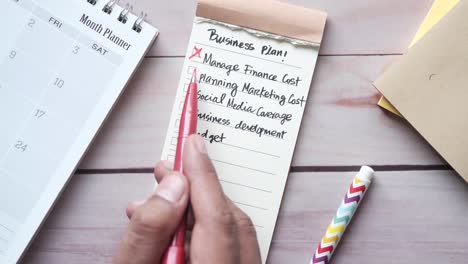 Month Planner
FRI SAT
2
3
9
10
17
24
Business Plan!
× Manage Finance Cost
Planning Marketing Cost
Social Media Coverage
Business development